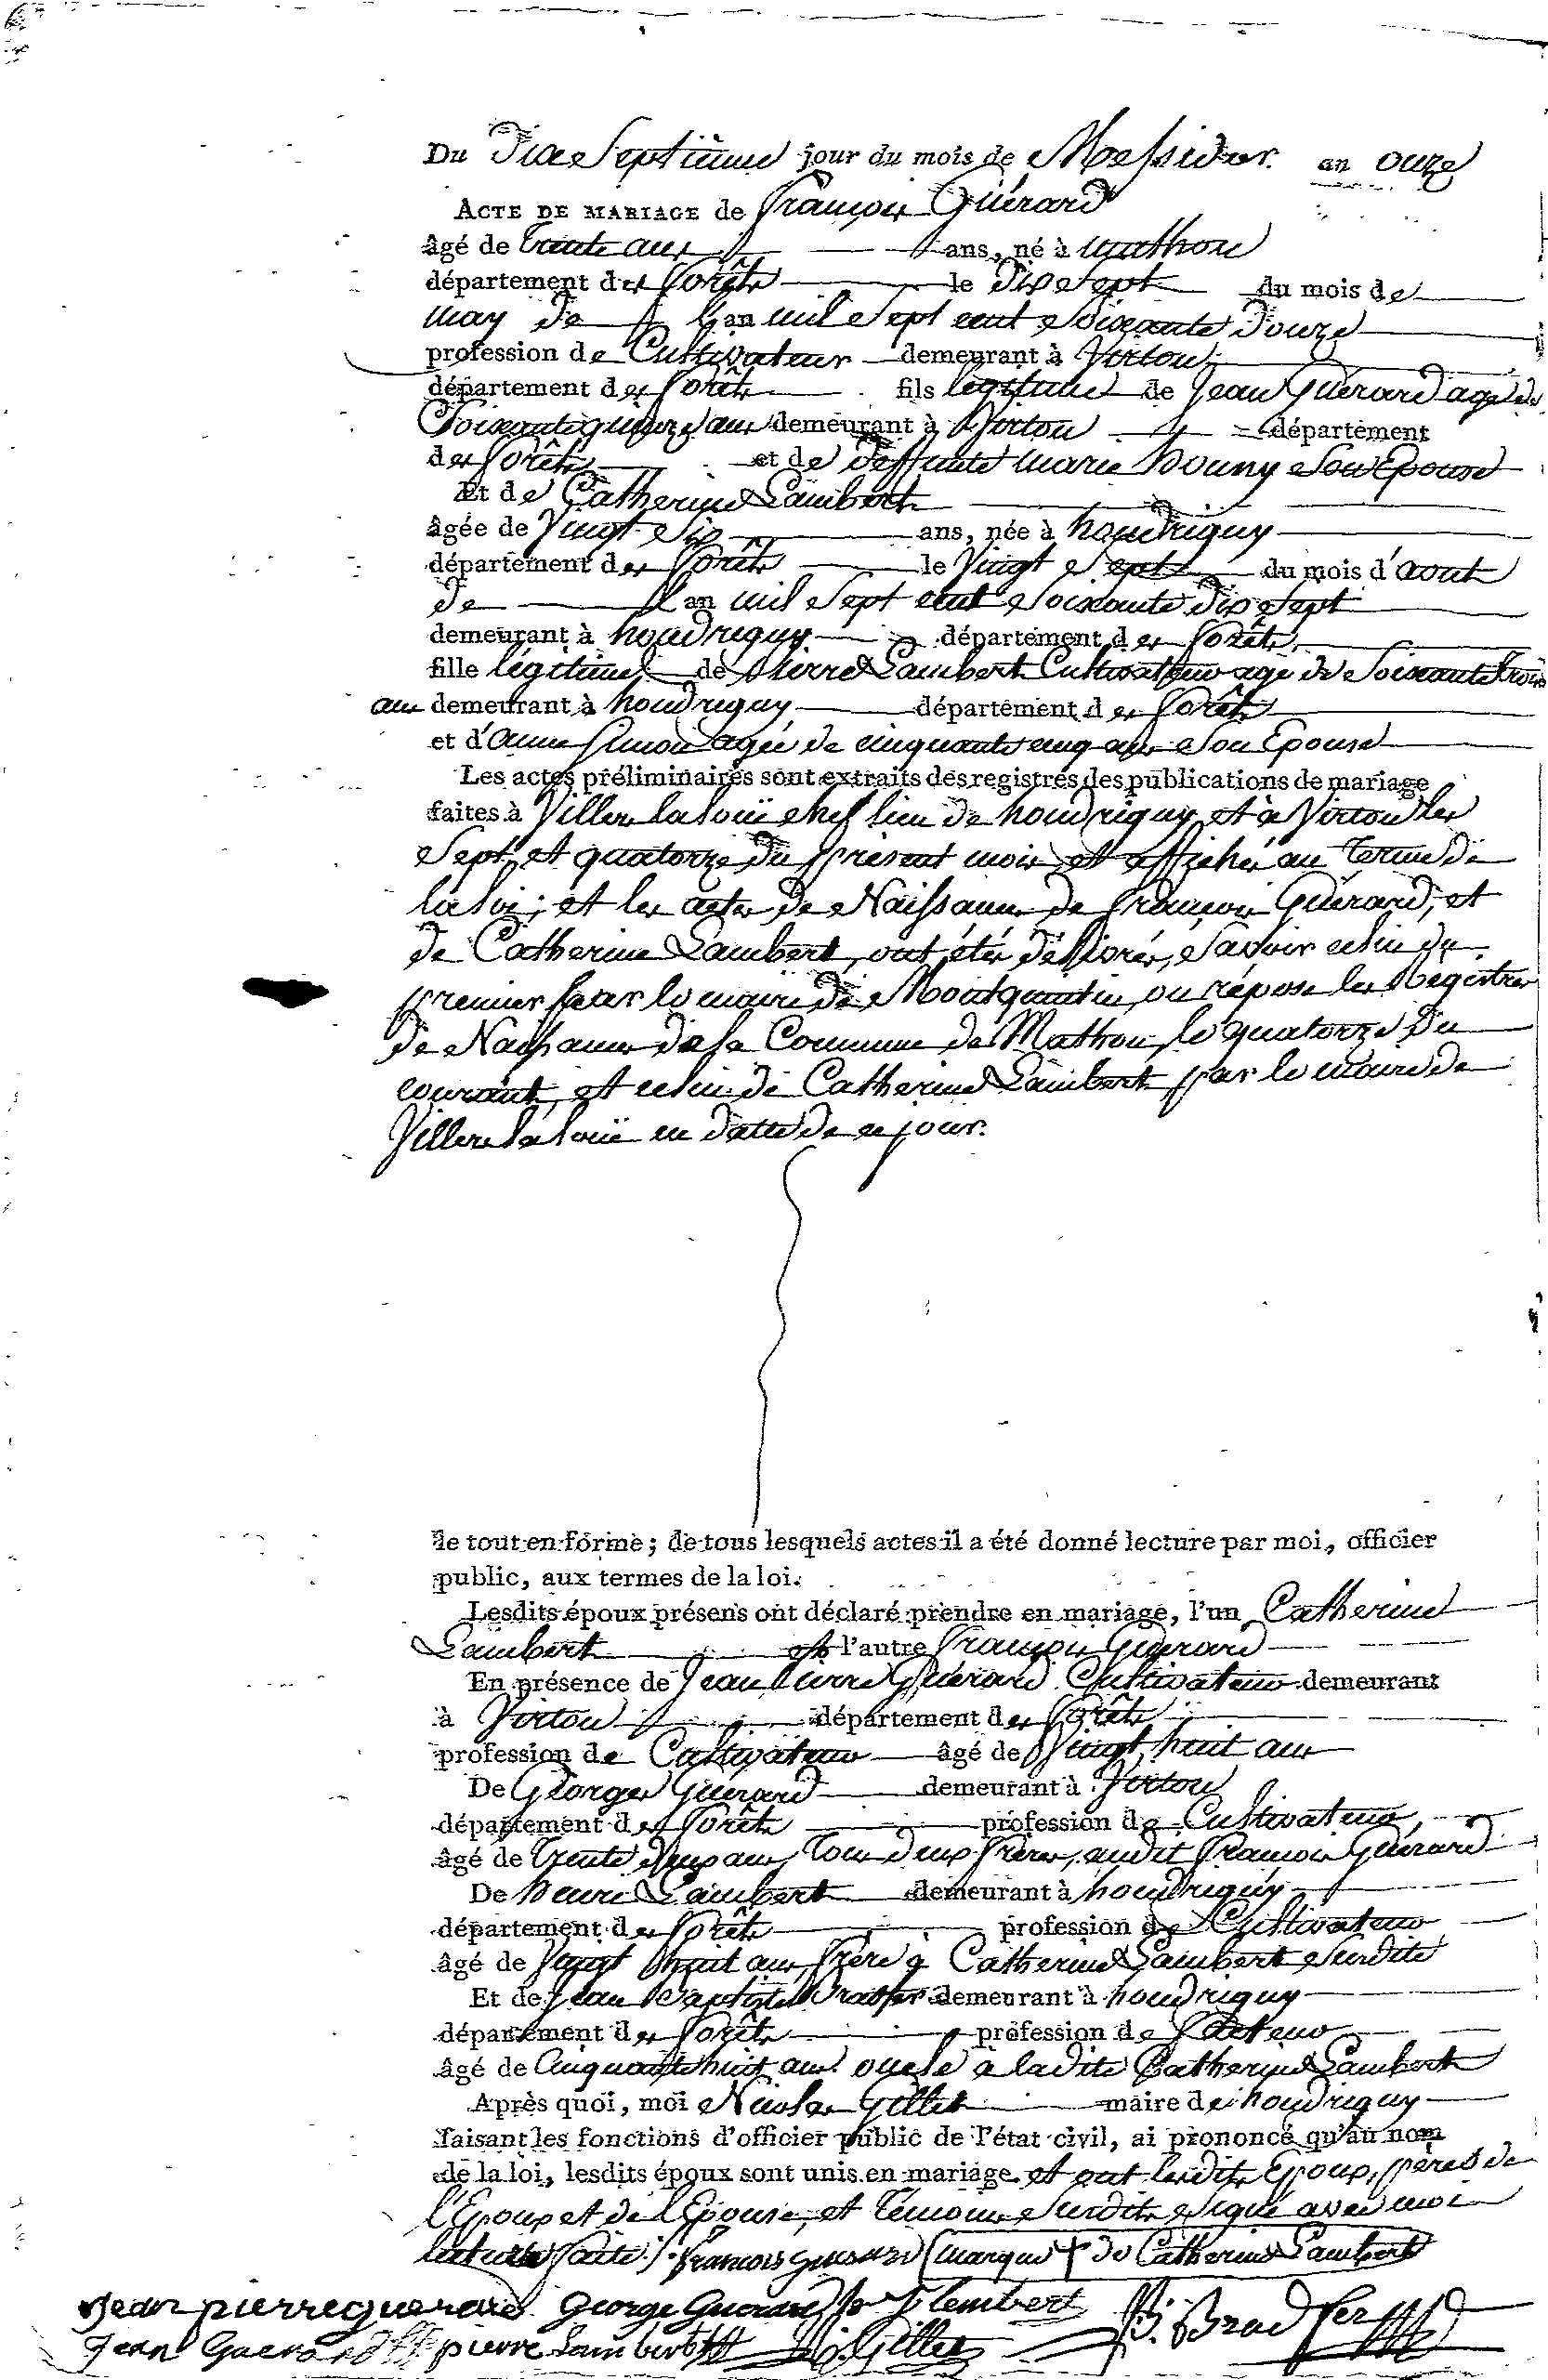 Du Dix Septieme jour du mois de Messidor. an onze
ACTE DE MARIAGE de françois Guérard
âgé de trente ans ans, né à mathon
département des forêts le Dix Sept du mois de
may de l'an mil Sept cent Soixante Douze
profession de Cultivateur demeurant à Virton
département des forêts fils légitime de Jean Guérard agé de
Soixante quinze ans demeurant à Virton département
des forêts et de deffunte marie Son Epouse
Et de Catherine Lambert
âgée de Vingt Six ans, née à houdrigny
département des forêts le Vingt Sept du mois d'aout
de l'an mil Sept cent Soixante Dix Sept
demeurant à houdrigny département des forêts
fille légitime de Pierre Lambert Cultivateur agé de Soixante trois
ans demeurant à houdrigny département des forêts
et d'anne Simon agée de cinquante cinq ans Son Epouse
Les actes préliminaires sont extraits des registres des publications de mariage
faites à Villers laloüe chef lieu de houdrigny et à Virton les
Sept et quatorze du présent mois et affichés au terme de
la loi; et les actes de Naissance de françois Guérard, et
de Catherine Lambert, ont étés délivrés, Savoir celui du
premier par le maire de Montquintin, ou répose les Registres
de Naissance de la Commune de Mathon, le quatorze du
courant, et celui de Catherine Lambert par le maire de
Villers la loüe en datte de ce jour.
le tout en forme; de tous lesquels actes il a été donné lecture par moi, officier
public, aux termes de la loi.
Lesdits époux présens ont déclaré prendre en mariage, l'un Catherine
Lambert et l'autre françois Guérard
En présence de Jean Pierre Guérard Cultivateur demeurant
à Virton département des forêts
profession de Cultivateur âgé de Vingt huit ans
De George Guérard demeurant à Virton
département des forêts profession de Cultivateur,
âgé de trente deux ans, tous deux frères, audit françois Guérard
De henri Lambert demeurant à houdrigny
département des forêts profession de Cultivateur
âgé de Vingt huit ans frère à Catherine Lambert Susdite
Et de Jean Baptiste demeurant à houdrigny
département des forêts profession de
âgé de Cinquante huit ans oncle à la dite Catherine Lambert
Après quoi, moi Nicolas Gillet maire de houdrigny
faisant les fonctions d'officier public de l'état civil, ai prononcé qu'au nom
de la loi, lesdits époux sont unis en mariage et ont lesdits Epoux, pères de
l'Epoux et de l'Epouse, et témoins Susdits Signé avec moi
lecture faite. francois guerard (marque + de Catherine Lambert
Jean pierre guerard George Guerard h lembert J.B. Bradfer
Jean Guerard pierre Lambert N. Gillet